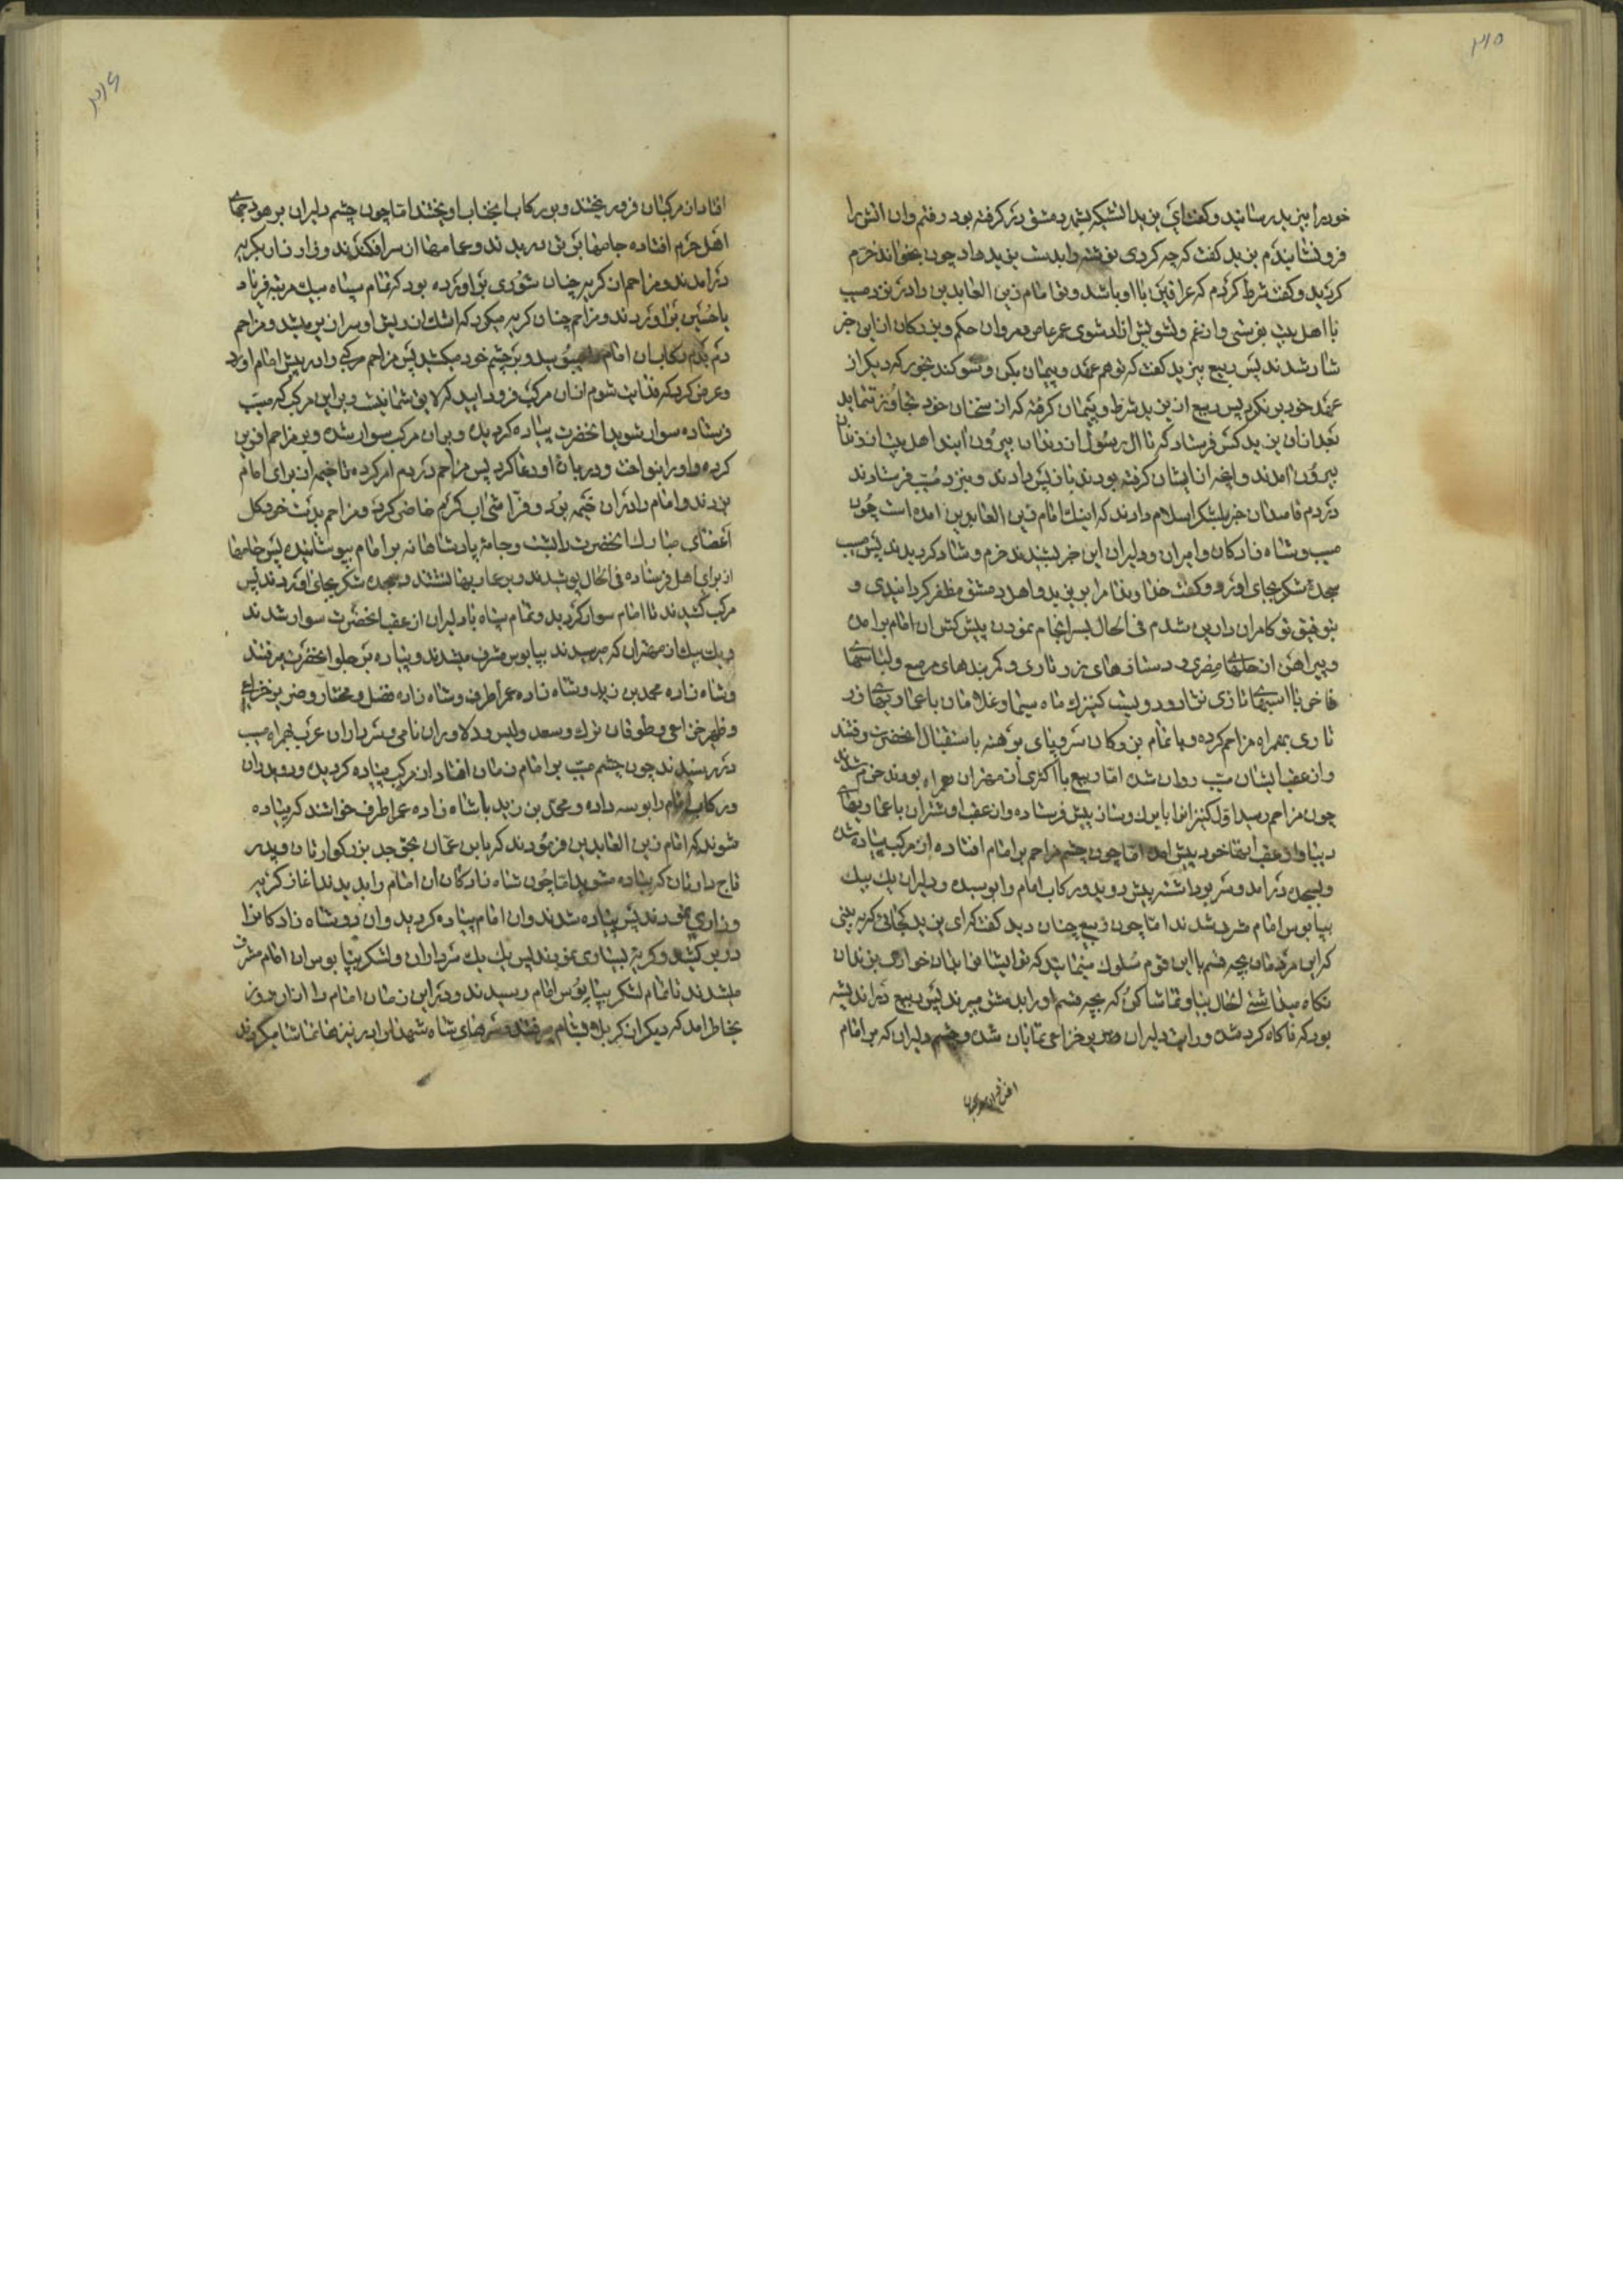 ۳۱۵
خود را بیزید رسانید و کفت ای یزید اتشیکه در دمشق در کرفته بود رفتم وان اتش را
فرو نشانیدم یزید کفت که چه کردی نوشته را بدست یزید داد چون بخواند خرم
کردید و کفت شرط کردم که عراقین با او باشد و تو امام زین العابدین را در نزد مسیب
با اهل بیت بفرستی و از غم و تشویش ازاد شوی عمر عاص و مروان حکم و بزرکان از این خبر
شاد شدند پس ربیع بیزید کفت که تو هم عهد و پیمان بکن و سوکند بخور که دیکر از
عهد خود بر نکردی پس ربیع از یزید شرط و پیمان کرفته که از سخنان خود تجاوز ننماید
بعد از ان یزید کس فرستاد که تا ال رسول از زندان بیرون ایند اهل بیت از زندان
بیرون امدند و انچه از ایشان کرفته بودند باز پس دادند و بنزد مسیب فرستادند
در دم قاصدان خبر بلشکر اسلام دادند که اینک امام زین العابدین امده است چون
مسیب و شاه زادکان و امیران و دلیران این خبر بشنیدند خرم و شاد کردیدند پس مسیب
سجدهٔ شکر بجای اورد و کفت خداوندا مرا بر یزید و اهل دمشق مظفر کردانیدی و
بتوفیق تو کامران دارین شدم فی الحال بسرانجام نمودن پیش کش ان امام برامد
و پیراهن از حلهای مصری و دستارهای زر تاری و کمربندهای مرصع و لباسهای
فاخر با اسبهای تازی نثار و دویست کنیزک ماه سیما و غلامان با عماریهای زر
تاری بهمراه مزاحم کرده و با تمام بزرکان سر و پای برهنه باستقبال انحضرت رفتند
و از عقب ایشان مسیب روان شد اما ربیع با اکثری از مهتران همراه بودند خرم شدند
چون مزاحم رسید اول کنیزانرا با یرک و ساز پیش فرستاده و از عقب او شتران با عماریهای
دیبا و از عقب انها خود پیش امد اما چون چشم مزاحم بر امام افتاده از مرکب پیاده شد
و بسجده در امد و سر برداشته پیش دوید و رکاب امام را بوسیده و دلیران یک بیک
بپابوس امام مشرف شدند اما چون ربیع چنان دید کفت که ای یزید کجائی که به بینی
که این مردمان بچه قسم با این قوم سلوک مینمایند که تو ایشانرا بدان خواری بزندان
نکاه میداشتی الحال بیا و تماشا کن که بچه قسم او را بدمشق میبرند پس ربیع در اندیشه
بود که ناکاه کرد شد و رایت دلیران و صر بر خزاعی نمایان شد و چشم دلیران که بر امام
۳۱۶
افتاد از مرکبان فرو ریختند و بر رکاب انجناب اویختند اما چون چشم دلیران بر هودجهای
اهل حرم افتاده جامها بر تن دریدند و عمامها از سر افکندند و زار زار بکریه
در امدند و مزاحم از کریه چنان شوری بر اورده بود که تمام سپاه بیک مرتبه فریاد
یا حسین بر اوردند و مزاحم چنان کریه میکرد که اشک از ریش او سرازیر میشد و مزاحم
دم بدم رکاب ان امام را میبوسید و بر چشم خود میکشید پس مزاحم مرکبی را در پیش امام اورد
و عرض کرد که فدایت شوم از ان مرکب فرود ایید که لایق شما نیست و بر این مرکب که مسیب
فرستاده سوار شوید انحضرت پیاده کردیده و بر ان مرکب سوار شده و بر مزاحم افرین
کرده و او را بنواخت و در بارهٔ او دعا کرد پس مزاحم در دم امر کرده تا خیمه از برای امام
بزدند و امام را در ان خیمه برد و فرّاشی اب کرم حاضر کرده و مزاحم بدست خود کل
اعضای مبارک انحضرت را بشست و جامهٔ پادشاهانه بر امام بپوشانیده پس جامها
از برای اهل فرستاده فی الحال پوشیدند و بر عماریها نشستند و سجدهٔ شکر بجای اوردند پس
مرکب کشیدند تا امام سوار کردید و تمام سپاه با دلیران از عقب انحضرت سوار شدند
و یک بیک از مهتران که میرسیدند بپابوس مشرف میشدند و پیاده در جلو انحضرت میرفتند
و شاه زاده محمد بن زید و شاه زاده عمر اطرف و شاه زاده فضل و مختار و صر بر خزاعی
و ظهیر خزاعی و طوقان ترک و سعد و لیس و دلاوران نامی و سرداران عرب بهمراه مسیب
در رسیدند چون چشم مسیب بر امام زمان افتاد از مرکب پیاده کردیده و دوید و ان
و رکاب امام را بوسه داده و محمد بن زید با شاه زاده عمر اطرف خواستند که پیاده
شوند که امام زین العابدین فرمودند که یا بن عمّان بحق جد بزرکوارتان و پدر
تاج دارتان که پیاده مشوید اما چون شاه زادکان ان امام را بدیدند اغاز کریه
و زاری نمودند پس پیاده شدند و ان امام پیاده کردید و ان دو شاه زادکانرا
در بر کشید و کریه بسیاری نمودند پس یک یک سرداران و لشکر بپابوس ان امام مشرف
میشدند تا تمام لشکر بپابوس امام رسیدند و در این زمان امام را از ان روز
بخاطر امد که دیکر از کربلا و شام میرفتند و سرهای شاه شهدا بر سر نیزها تماشا میکردند